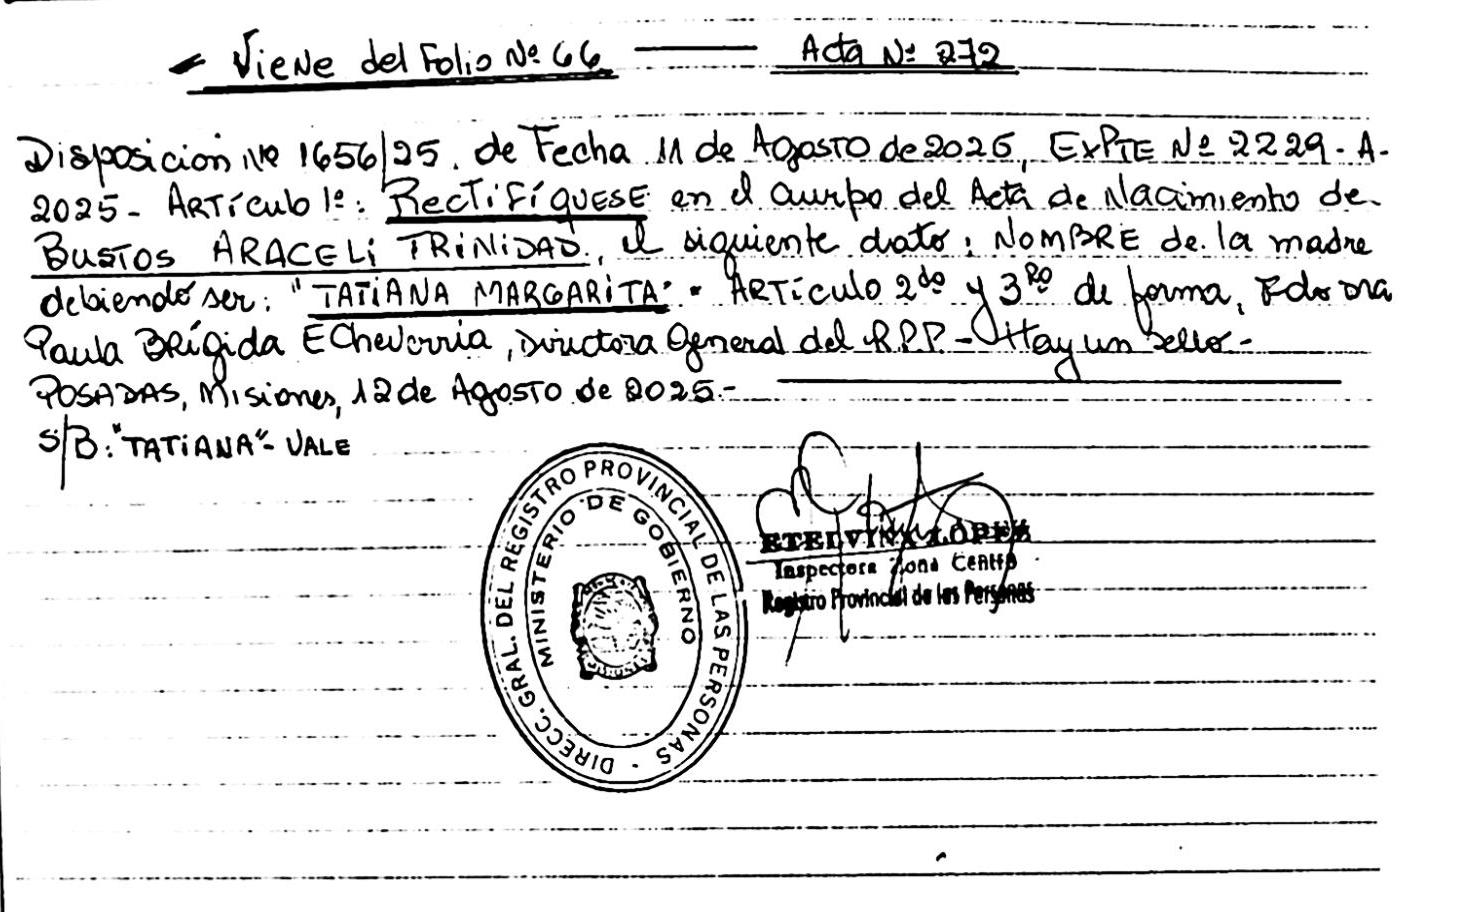 Viene del Folio Nº 66 — Acta Nº 272
Disposicion Nº 1656/25. de Fecha 11 de Agosto de 2025, EXPTE Nº 2229-A-
2025- ARTículo 1º: RECTIFÍQUESE en el cuerpo del Acta de Nacimiento de
BUSTOS ARACELi TRiNiDAD, el siguiente dato: NOMBRE de la madre
debiendo ser: "TATiANA MARGARiTA"- ARTículo 2do y 3RO de forma, Fdo Dra
Paula BRígida EChevarria, Directora General del R.P.P- Hay un sello.-
POSADAS, Misiones, 12 de AgosTO de 2025.-
S/B: "TATiANA"- VALE
DIRECC. GRAL. DEL REGISTRO PROVINCIAL DE LAS PERSONAS -
MINISTERIO DE GOBIERNO
ETELVINA LÓPEZ
Inspectora Zona Centro
Registro Provincial de las Personas